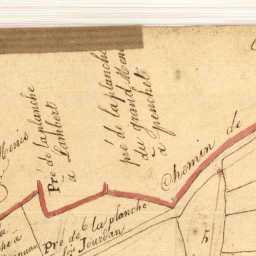 Menis
Pré de la planche
à Lambert
pré de la planche
du grand Meni
à
Chemin de
Pré de la planche
Jourdan